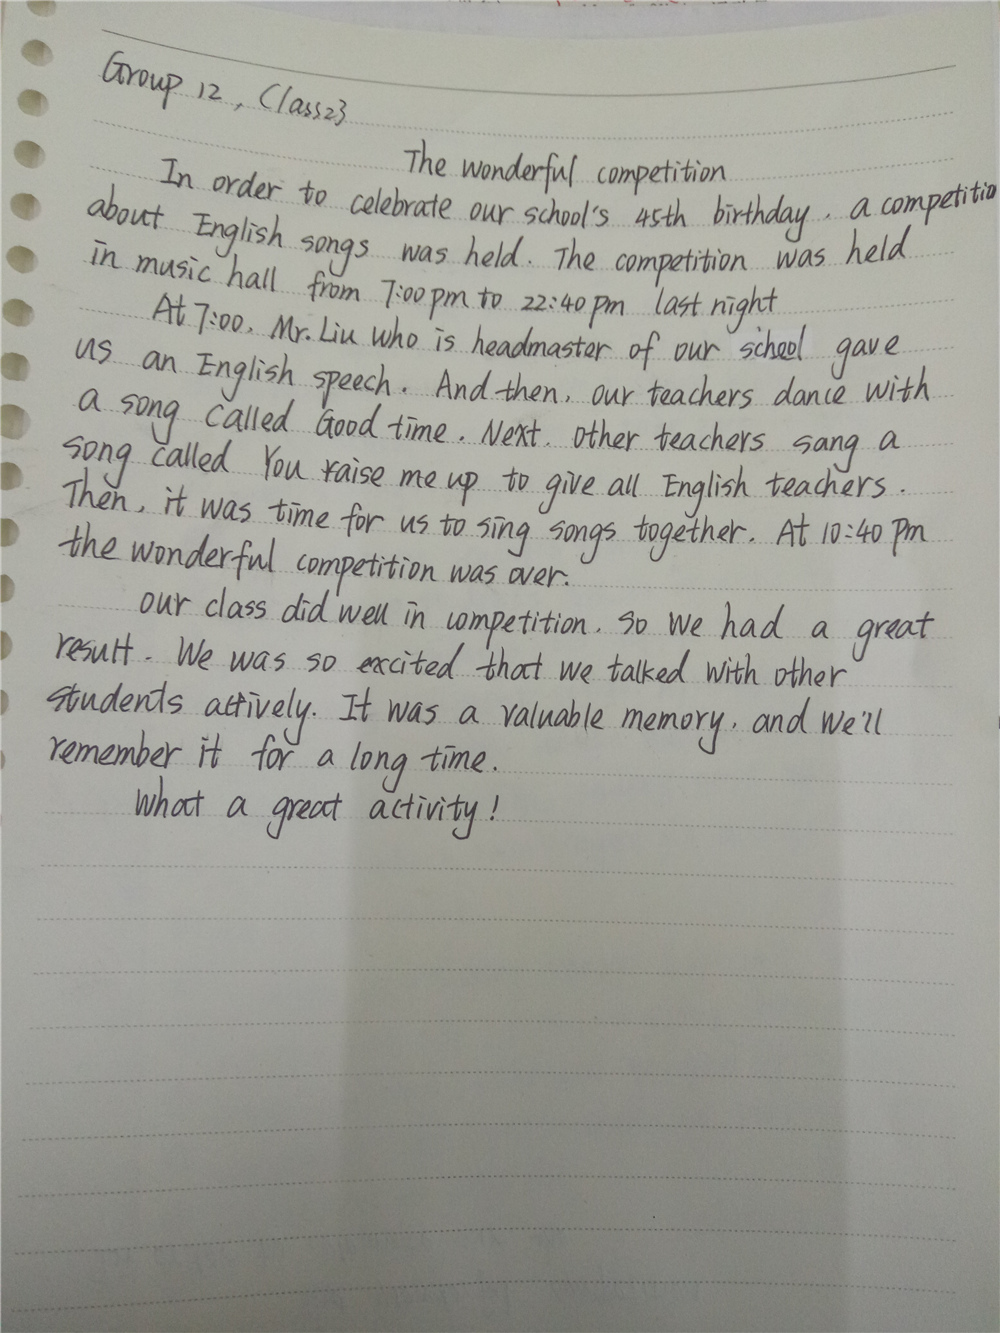 Group 12, Class23
The wonderful competition
In order to celebrate our school's 45th birthday, a competitio
about English songs was held. The competition was held
in music hall from 7:00pm to 22:40pm last night
At 7:00, Mr. Liu who is headmaster of our school gave
us an English speech. And then, our teachers dance with
a song called Good time. Next, other teachers sang a
song called You raise me up to give all English teachers.
Then, it was time for us to sing songs together. At 10:40 pm
the wonderful competition was over.
Our class did well in competition. So we had a great
result. We was so excited that we talked with other
students actively. It was a valuable memory, and we'll
remember it for a long time.
What a great activity!